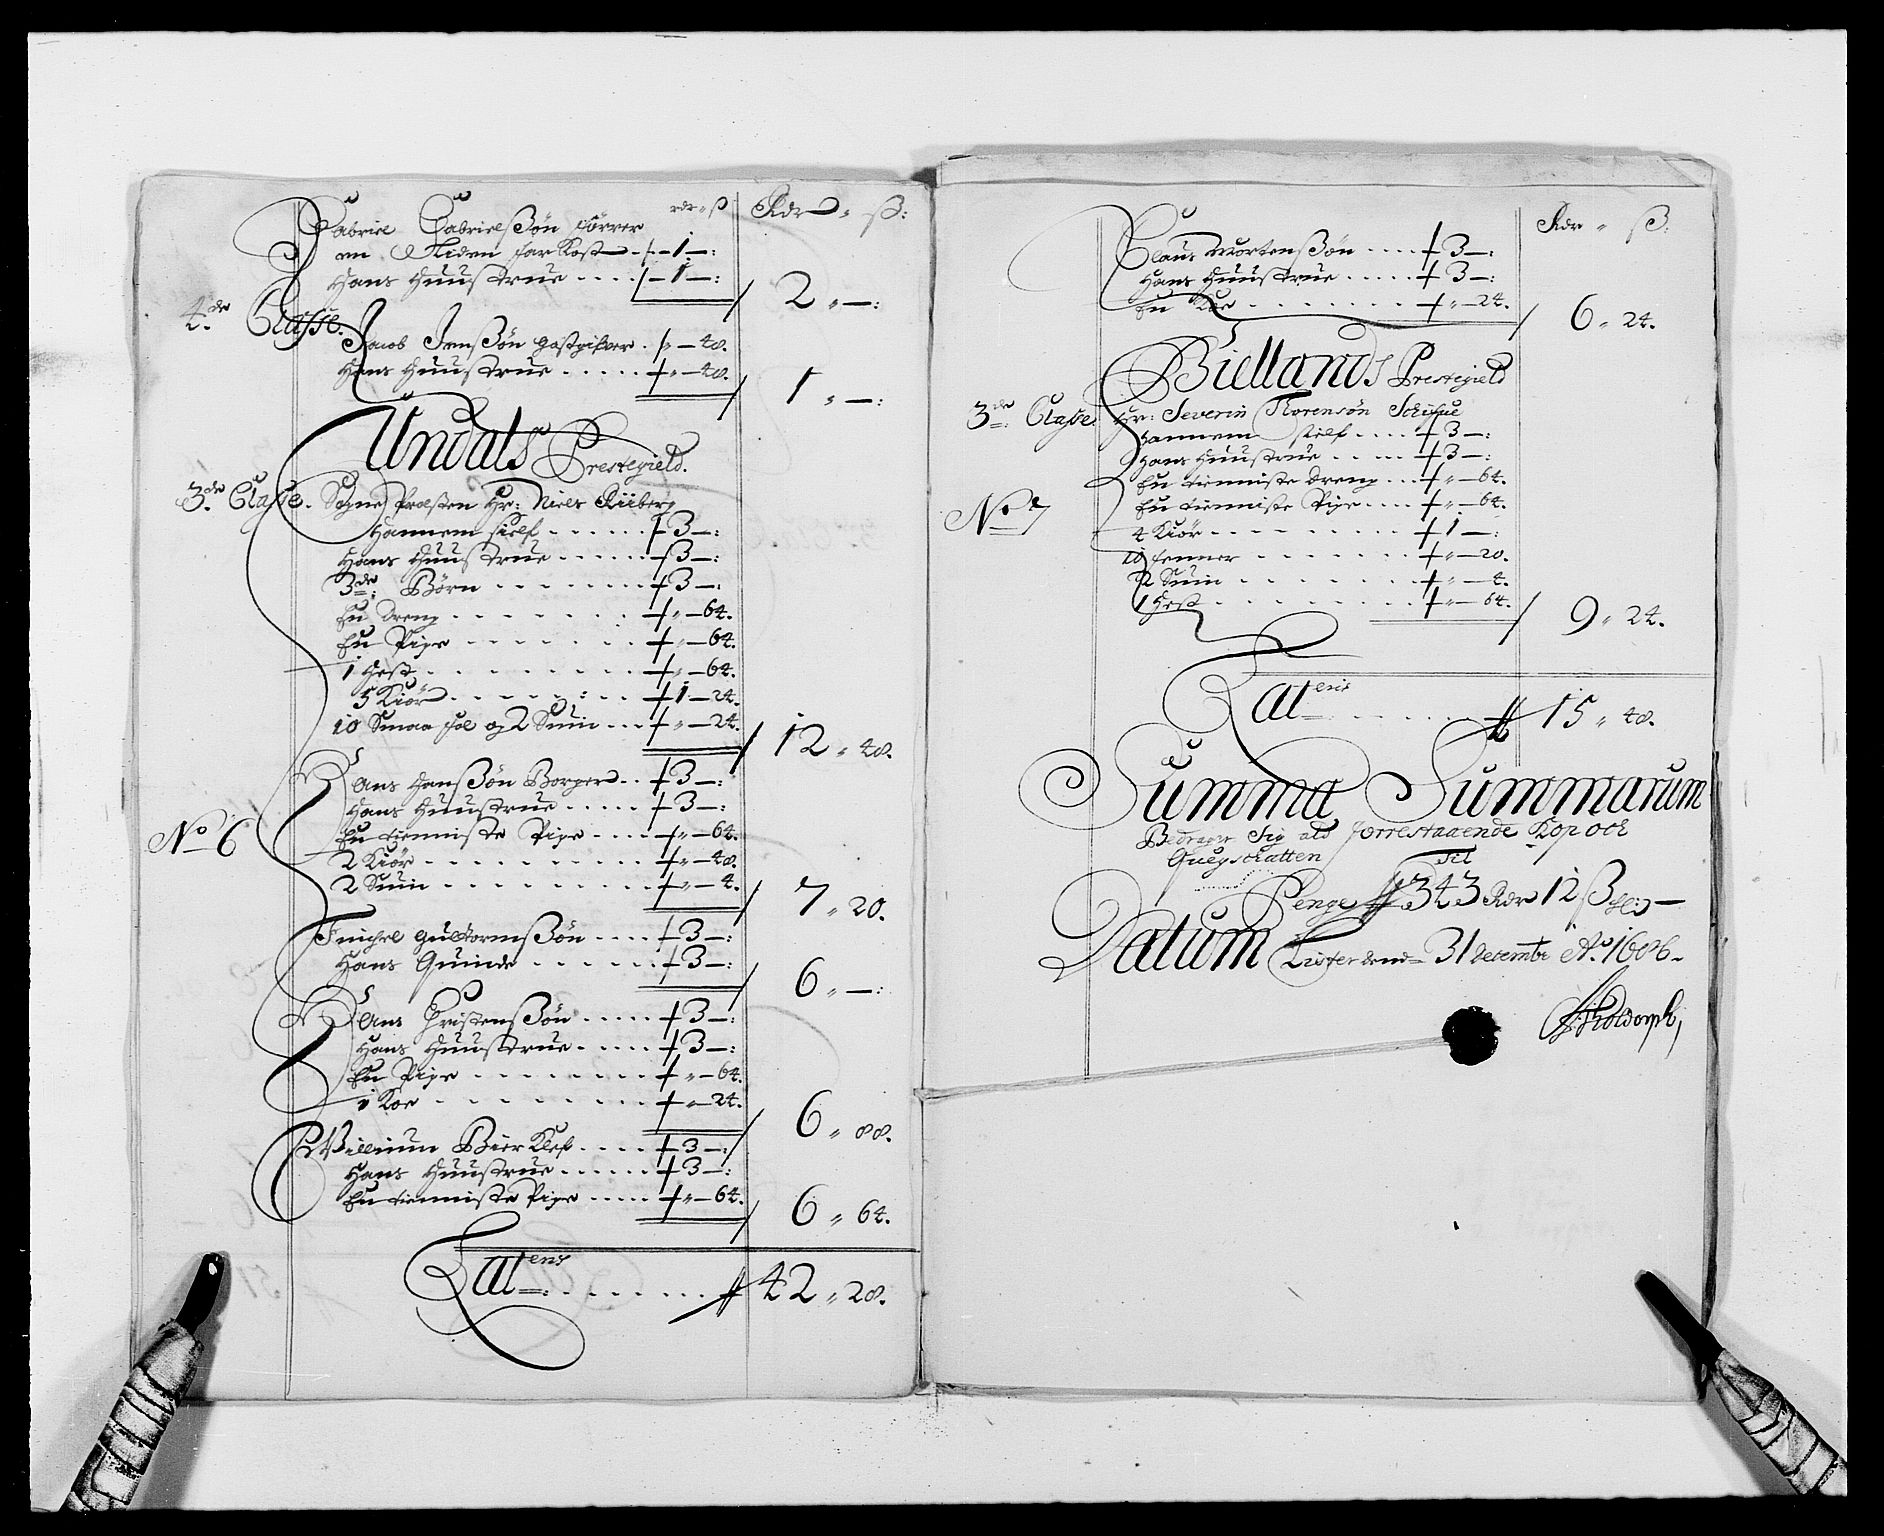 rdr " ß Rdr " ß:
Gabriel Gabrielßøn fører
en Liden farKost - 1 —:
Hans Huustrue .... - 1 —:
2 " —:
4.de Classe.
Jacob Jenßøn gestgifver . " — 48.
Hans Huustrue ..... " — 48.
1 " —:
Undals Prestegield.
3.de Classe. Sogne Prested Hr: Niels Riiberg
Hannem sielf ...... 3 —:
Hans Huustrue ...... 3 —:
3de: Børn ....... 3 —:
En Dreng ....... " — 64.
En Pige ....... " — 64.
1 Hest ........ " — 64.
5 Kiør ....... 1 — 24.
10 Smaa fæ og 2 Suin ... " — 24.
12 " 48.
Hans Hanßøn Borger .. 3 —:
Hans Huustrue ..... 3 —:
No 6
En tienniste Pige .... " — 64.
2 Kiør ......... " — 48.
2 Suin ........ " — 4.
7 " 20.
Guldtormßøn .... 3 —:
Hans Quinde ...... 3 —:
6 " —:
Hans Christenßøn ..... 3 —:
Hans Huustrue ..... 3 —:
En Pige ........ " — 64.
1 Koe ........ " — 24.
6 " 88.
Willum BierKlef .... 3 —:
Hans Huustrue ...... 3 —:
En tienniste Pige ..... " — 64.
6 " 64.
Latens ....... 42 " 28.
Rdr " ß:
Claus Mortenßøn .... 3 —:
Hans Huustrue ..... 3 —:
En Koe ........ " — 24.
6 " 24.
Biellands Prestegield
3de: Classe. Hr: Severin Thorensøn
Hannem sielf .... 3 —:
Hans Huustrue .. ... 3 —:
En tienniste Dreng ... " — 64.
No 7
En tienniste Pige .... " — 64.
4 Kiør ........ 1 —:
10 fenner ....... " — 20.
2 Suin ....... " — 4.
1 Hest ......... " — 64.
9 " 24.
Latens ...... 15 " 48.
Summa Summarum
Bedrager Sig ald forrestaaende Kop och
Quegschatten til
Penge 343 Rdr 12 ß
Datum Lister dend 31 Decembr Ao: 1686.